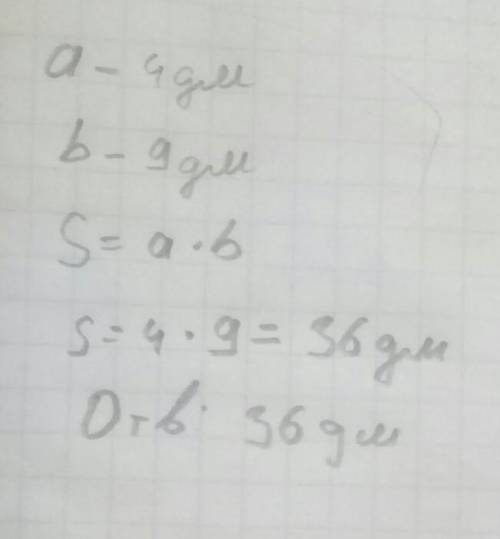 a - 4 дм
b - 9 дм
S = a · b
S = 4 · 9 = 36 дм
Отв: 36 дм